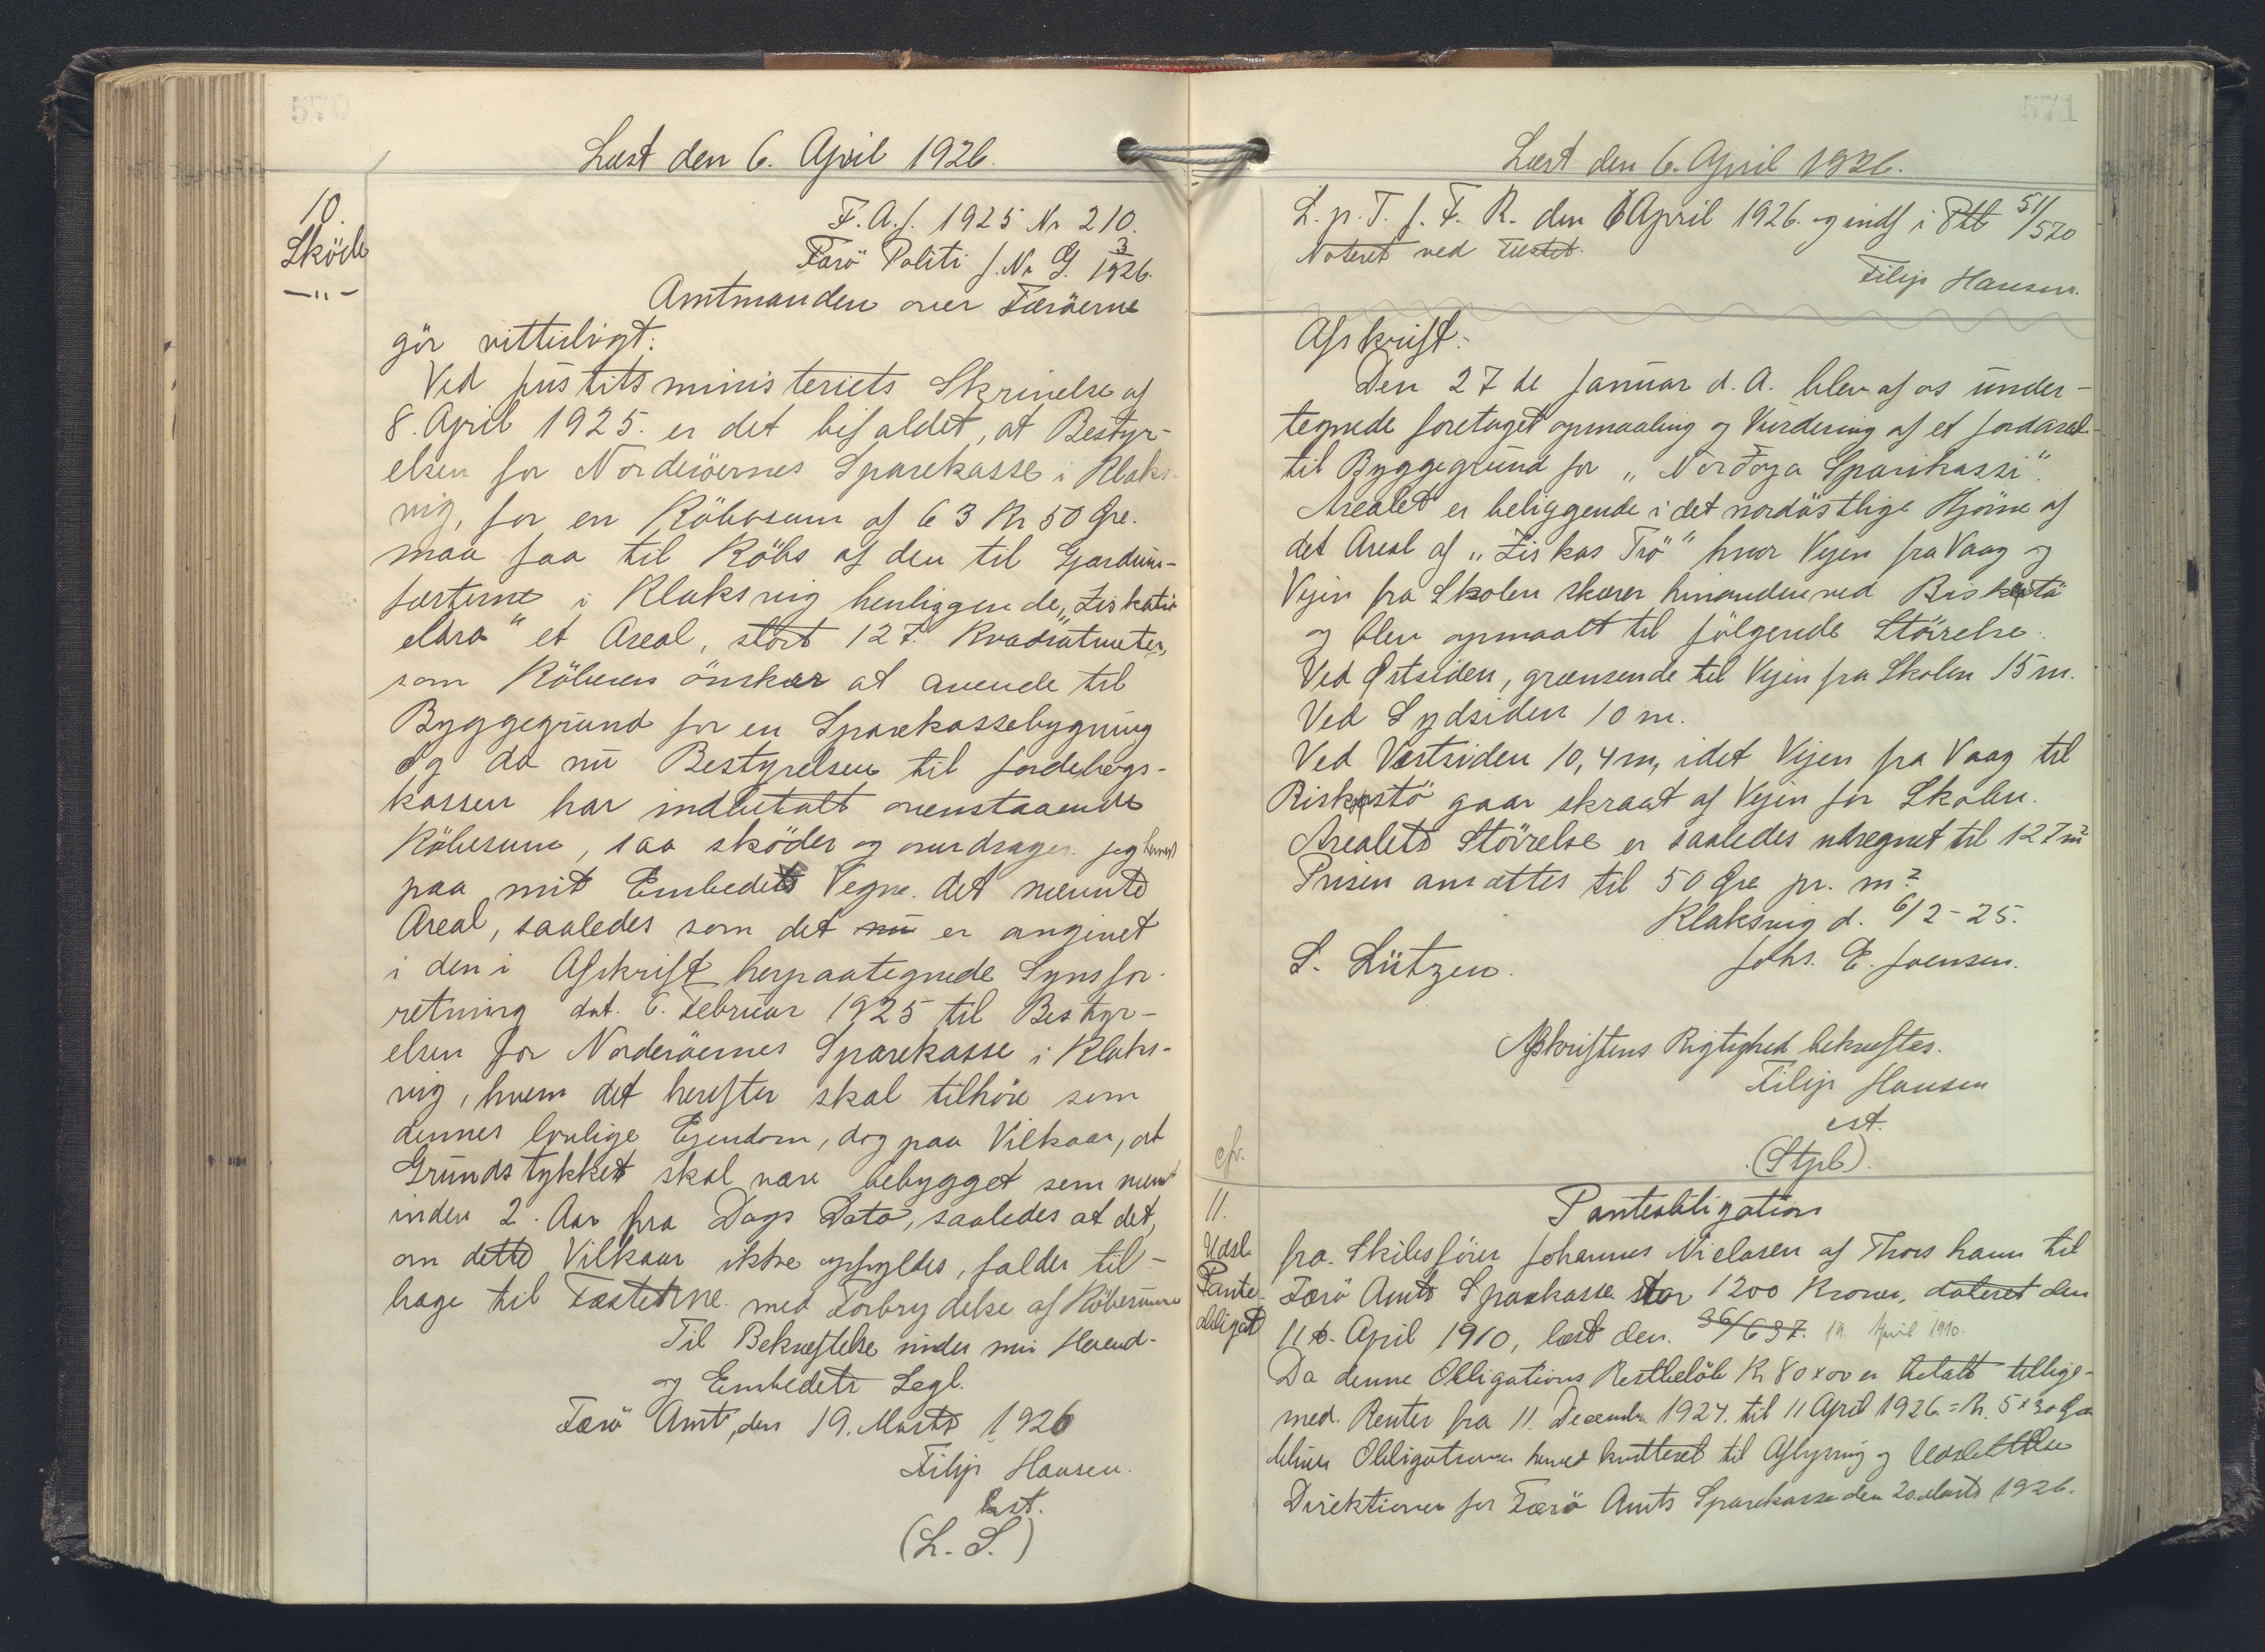 570
Læst den 6. April 1926.
10.
Sköde
-"-
F. A. J. 1925 Nr 210.
Færö Politi J. Nr G. 3/1926.
Amtmanden over Færöerne
gör vitterligt:
Ved Justitsministeriets Skrivelse af
8. April 1925. er det bifaldet, at Bestyr-
elsen for Norderöernes Sparekasse i Klaks-
vig, for en Köbesum af 63 Kr 50 Øre.
maa faa til Köbs af den til Gjardum-
fæsterne i Klaksvig henliggende
et Areal, stort 127. Kvadratmeter,
som Köberen önsker at anvende til
Byggegrund for en Sparekassebygning
og da nu Bestyrelsen til Jordebogs-
kassen har indbetalt ovenstaaende
Köbesum, saa sköder og overdrager jeg herved
paa mit Embedets Vegne det nævnte
Areal, saaledes som det nu er angivet
i den i Afskrift herpaategnede Synsfor-
retning dat. 6. Februar 1925 til Bestyr-
elsen for Norderöernes Sparekasse i Klaks-
vig, hvem det herefter skal tilhöre som
dennes lovlige Ejendom, dog paa Vilkaar, at
Grundstykket skal være bebygget som nævnt
inden 2. Aar fra Dags Dato, saaledes at det,
om dette Vilkaar ikke opfyldes, falder til-
bage til Fæsterne med Forbrydelse af Köbesummen
Til Bekræftelse under min Haand-
og Embedets Segl.
Færö Amt, den 19. Marts 1926
Filip Hansen.
cst.
(L. S.)
571
Læst den 6. April 1926.
L. p. T. f. F. R. den 6 April 1926. og indf i Ptb 51/570
Noteret ved Fæstet.
Filip Hansen.
Afskrift:
Den 27de Januar d. A. blev af os under-
tegnede foretaget opmaaling og Vurdering af et Jordareal
til Byggegrund for "Norđoya Sparikassi".
Arealet er beliggende i det nordöstlige Hjörne af
det Areal af "Ziskas Trö" hvor Vejen fra Vaag og
Vejen fra Skolen skærer hinanden ved
og blev opmaalt til fölgende Störrelse:
Ved Østsiden, grænsende til Vejen fra Skolen 15 m.
Ved Sydsiden 10 m.
Ved Vestsiden 10,4 m, idet Vejen fra Vaag til
gaar skraat af Vejen for Skolen.
Arealets Störrelse er saaledes udregnet til 127 m²
Prisen ansættes til 50 Øre pr. m²
Klaksvig d. 6/2-25.
S. Lützen. Johs. E. Joensen.
Afskriftens Rigtighed bekræftes.
Filip Hansen
cst.
(Stpl).
cfr.
11.
Udsl.
Pante-
obligat
Panteobligation
fra Skibsförer Johannes Nielsen af Thorshavn til
Færö Amts Sparekasse stor 1200 Kroner, dateret den
11te April 1910, læst den. 36/637. 19. April 1910.
Da denne Obligations Restbelöb Kr 80x00 er betalt tillige-
med Renter fra 11. Decembr 1924. til 11 April 1926. = Kr. 5x30 Øre
bliver Obligationen herved kvitteret til Aflysning og Udslettelse
Direktionen for Færö Amts Sparekasse den 20. Marts 1926.